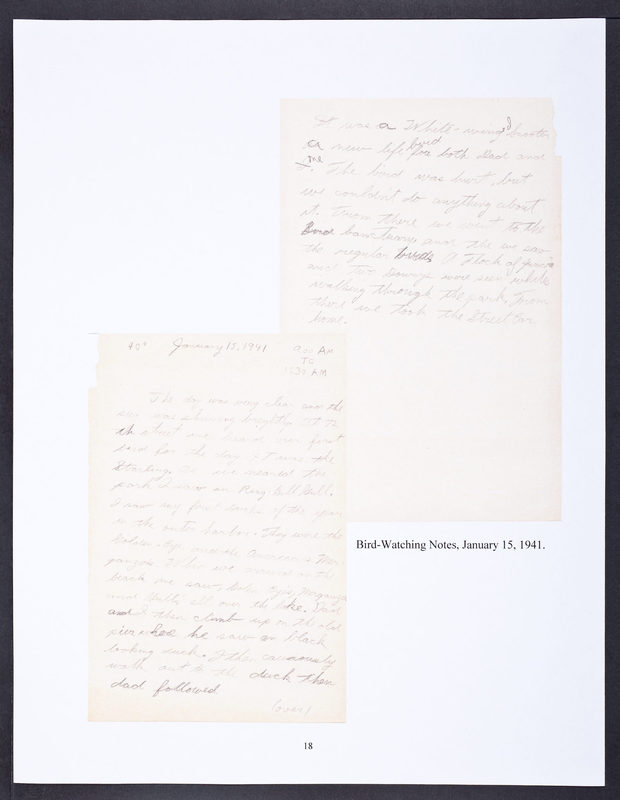 40° January 15, 1941 9:00 AM
TO
11:30 AM
The day was very clear and the
sun was shining brightly. At 72
th street we heard our first
bird for the day. It was the
Starling. As we neared the
park I saw an Ring-bill Gull.
I saw my first ducks of the year
in the outer harbor. They were the
Golden-Eye and the American Mer-
gansers. When we arrived on the
beach we saw Golden Eyes, Merganser
and Gulls all over the lake. Dad
and I then climb up on the old
pier where he saw an black
looking duck. I then cautiously
walk out to the duck then
dad followed
(over)
It was a White-winged Scoter
a new life bird for both Dad and
me. The bird was hurt, but
we couldn't do anything about
it. From there we went to the
Bird Sanctuary and there we saw
the regular birds. A flock of
and two Downys were seen while
walking through the park. From
there we took the Street Car
home.
Bird-Watching Notes, January 15, 1941.
18